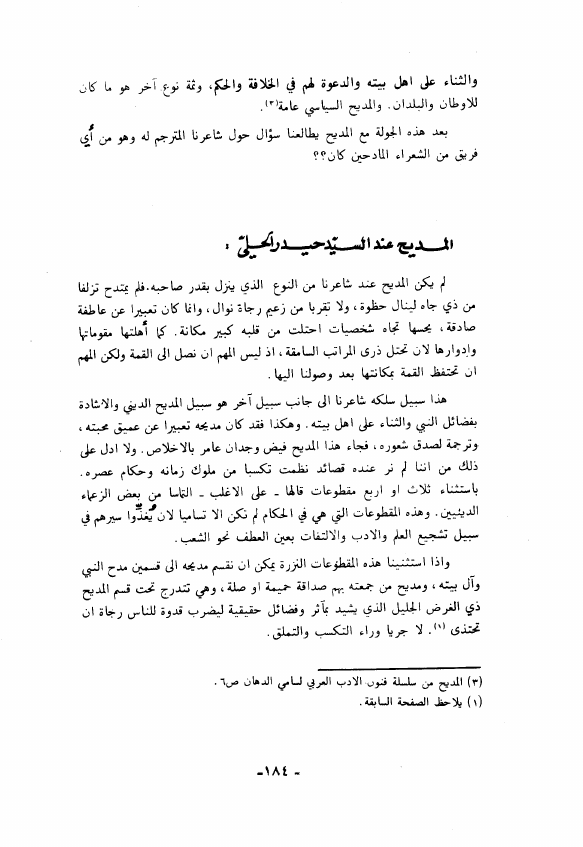 والثناء على اهل بيته والدعوة لهم في الخلافة والحكم، وثمة نوع آخر هو ما كان
للاوطان والبلدان. والمديح السياسي عامة(٣).
بعد هذه الجولة مع المديح يطالعنا سؤال حول شاعرنا المترجم له وهو من أي
فريق من الشعراء المادحين كان؟؟
المديح عند السيّد حيدر الحليّ :
لم يكن المديح عند شاعرنا من النوع الذي ينزل بقدر صاحبه.فلم يمتدح تزلفا
من ذي جاه لينال حظوة، ولا تقربا من زعيم رجاة نوال، وانما كان تعبيرا عن عاطفة
صادقة، يحسها تجاه شخصيات احتلت من قلبه كبير مكانة. كما أهلتها مقوماتها
وإدوارها لان تحتل ذرى المراتب السامقة، اذ ليس المهم ان نصل الى القمة ولكن المهم
ان تحتفظ القمة بمكانتها بعد وصولنا اليها.
هذا سبيل سلكه شاعرنا الى جانب سبيل آخر هو سبيل المديح الديني والاشادة
بفضائل النبي والثناء على اهل بيته. وهكذا فقد كان مديحه تعبيرا عن عميق محبته،
وترجمة لصدق شعوره، فجاء هذا المديح فيض وجدان عامر بالاخلاص. ولا ادل على
ذلك من اننا لم نر عنده قصائد نظمت تكسبا من ملوك زمانه وحكام عصره.
باستثناء ثلاث او اربع مقطوعات قالها ـ على الاغلب ـ التماسا من بعض الزعماء
الدينيين. وهذه المقطوعات التي هي في الحكام لم تكن الا تساميا لان يُغذّوا سيرهم في
سبيل تشجيع العلم والادب والالتفات بعين العطف نحو الشعب.
واذا استثنينا هذه المقطوعات النزرة يمكن ان نقسم مديحه الى قسمين مدح النبي
وآل بيته، ومديح من جمعته بهم صداقة حميمة او صلة، وهي تندرج تحت قسم المديح
ذي الغرض الجليل الذي يشيد بمآثر وفضائل حقيقية ليضرب قدوة للناس رجاة ان
تحتذى (١). لا جريا وراء التكسب والتملق.
(٣) المديح من سلسلة فنون الادب العربي لسامي الدهان ص٦.
(١) يلاحظ الصفحة السابقة.
- ١٨٤ -